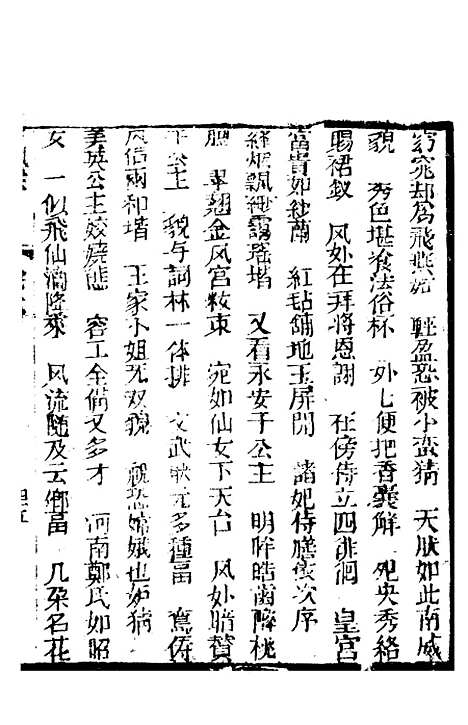 窈窕却為飛燕姤 輕盈恐被小蛮猜 天朕如此南威
貌 秀色堪飡法俗杯 外七便把香囊解 死央秀絡
賜裙釵 风处在拜將恩謝 在傍侍立四徘徊 皇宫
富貴如紗蔺 紅毡鋪地玉屏開 諸妃侍膳依次序
烟飄靄瑤堦 又看永安于公主 明眸皓齒降桃
腮 翠翘金风宫粧束 宛如仙女下天台 风处暗贊
公主 貌与詞林一体排 文武状元多種富 鴛俦
侣兩和堦 王家小姐无双貌 嫦娥也妬猜
美英公主姣嬈態 容工全俻又多才 河南鄭氏如昭
女 一似飛仙滴降來 风流随及云鄉畐 几朶名花
四五